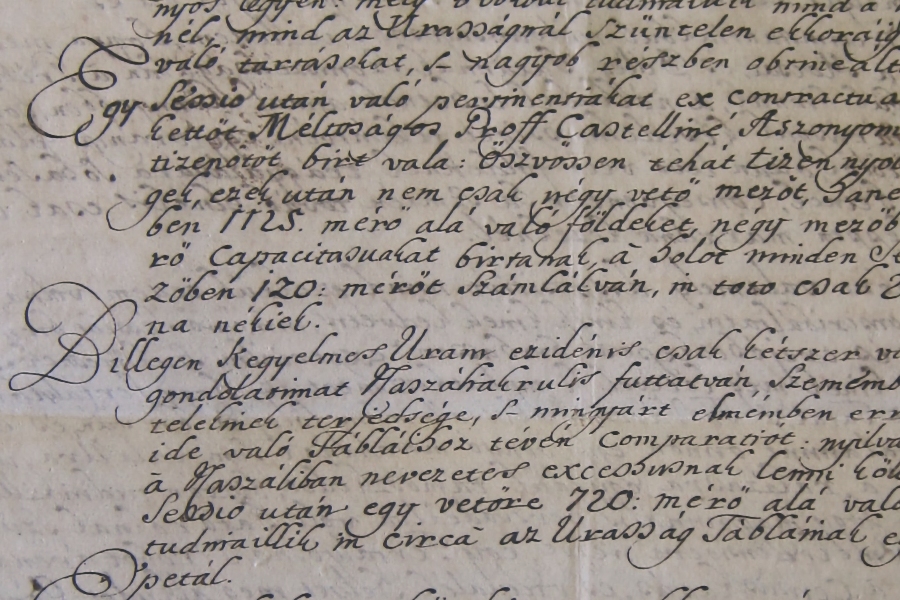 nyos légyen: mely
nél, mind az Urasságnál szüntelen ekkoráig
való tartásokat, s nagyob részben
Egy Séssió után való pertinentiákat ex contractu a
kettöt Méltoságos Proff Castelliné Aszonyom
tizenötöt birt vala: öszvössen tehát tizen nyol
gek, ezek után nem csak négy vetö mezöt,
ben 1125. mérö alá való földeket, negy mezöb
rö Capacitasuakat birtanak, à holot minden
zöben 120: méröt számlálván, in toto csak
na nékiek.
Illegen Kegyelmes Uram ezidénis csak kétszer
gondolatimat Naszályhakrulis futtatván, Szememb
teleknek terjedsége, s mingyárt elmémben
ide való Táblákhoz tévén Comparatiót: nyilva
à Naszáliban nevezetes excessusnak lenni köl
Sessió után egy vetöre 720: mérö alá való
tudniaillik in circa az Urasság Tábláinak
petál.